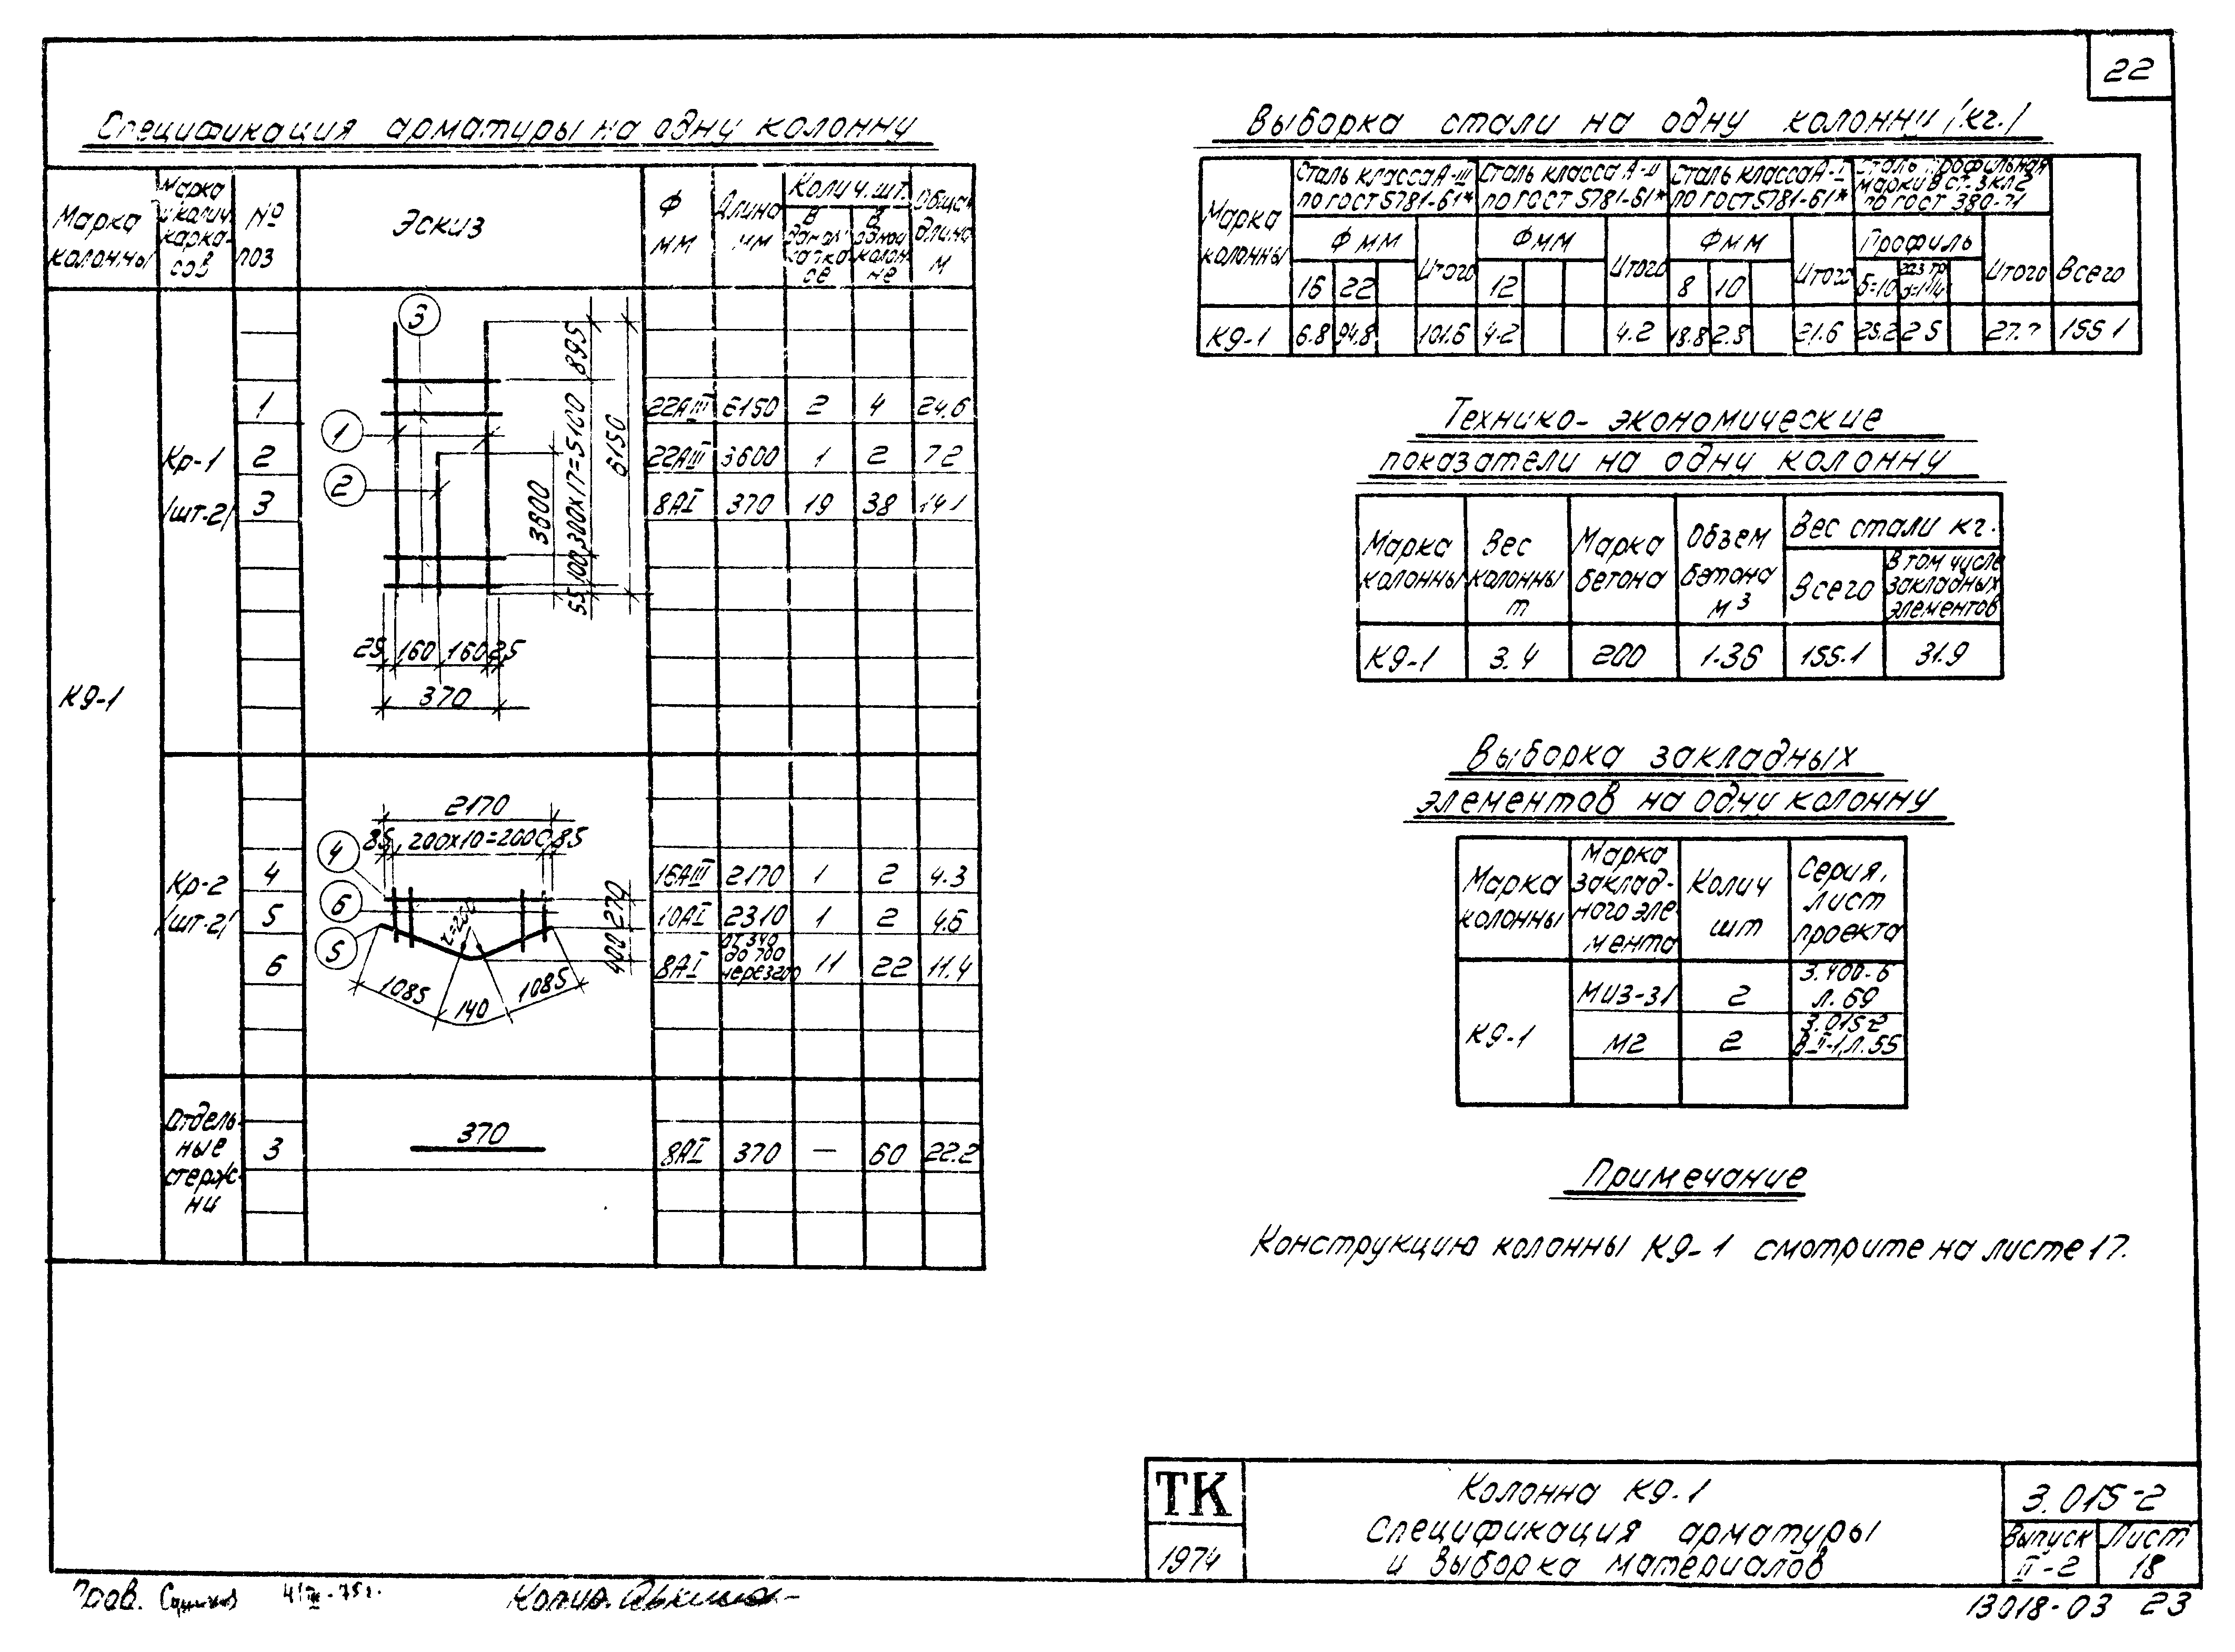 22
Спецификация арматуры на одну колонну
Марка колонны
Марка и колич. каркасов
№ поз
Эскиз
Ф мм
Длина мм
Колич. шт.
В одной колонне
Общая длина м
К9-1
Кр-1 /шт-2/
1 22АIII 6150 2 4 24.6
2 22АIII 3600 1 2 7.2
3 8АI 370 19 38 14.1
3
1
2
895
300х17=5100
6150
3600
100
55
25 160 160 25
370
Кр-2 /шт-2/
4 16АIII 2170 1 2 4.3
5 10АI 2310 1 2 4.6
6 8АI от 340 до 700 11 22 11.4
2170
85 200х10=2000 85
4
6
5
270
400
1085 140 1085
Отдельные стержни
3 370 8АI 370 — 60 22.2
Выборка стали на одну колонну /кг./
Марка колонны
Сталь класса А-III по ГОСТ 5781-61*
Сталь класса А-II по ГОСТ 5781-61*
Сталь класса А-I по ГОСТ 5781-61*
Сталь профильная марки В ст. 3 кп2 по ГОСТ 380-71
Ф мм Ф мм Ф мм Профиль
16 22 Итого 12 Итого 8 10 Итого δ=10 Итого Всего
К9-1 6.8 94.8 101.6 4.2 4.2 18.8 2.8 21.6 25.2 2.5 155.1
Технико-экономические
показатели на одну колонну
Марка колонны
Вес колонны т
Марка бетона
Объем бетона м3
Вес стали кг.
Всего
В том числе закладных элементов
К9-1 3.4 200 1.36 155.1 31.9
Выборка закладных
элементов на одну колонну
Марка колонны
Марка закладного элемента
Колич шт
Серия, лист проекта
К9-1
МИЗ-31 2 3.400-6 л. 69
М2 2 3.015-2 В II-1, л. 55
Примечание
Конструкцию колонны К9-1 смотрите на листе 17.
ТК
1974
Колонна К9-1
Спецификация арматуры
и выборка материалов
3.015-2
Выпуск II-2
Лист 18
13018-03 23